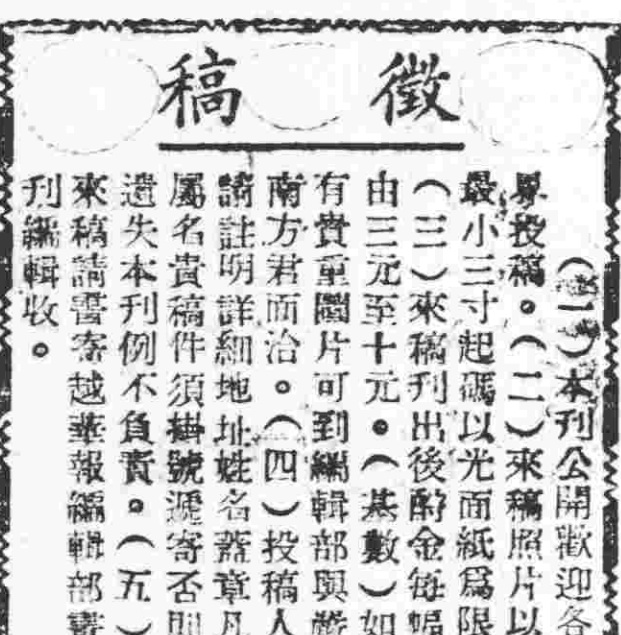 徵稿
（一）本刊公開歡迎各
界投稿。（二）來稿照片以
最小三寸起碼以光面紙爲限
（三）來稿刊出後酧金每幅
由三元至十元。（基數）如
有貴重圖片可到編輯部與
南方君面洽。（四）投稿人
請註明詳細地址姓名蓋章凡
屬名貴稿件須掛號遞寄否則
遺失本刊例不負責。（五）
來稿請書寄越華報編輯部
刊編輯收。